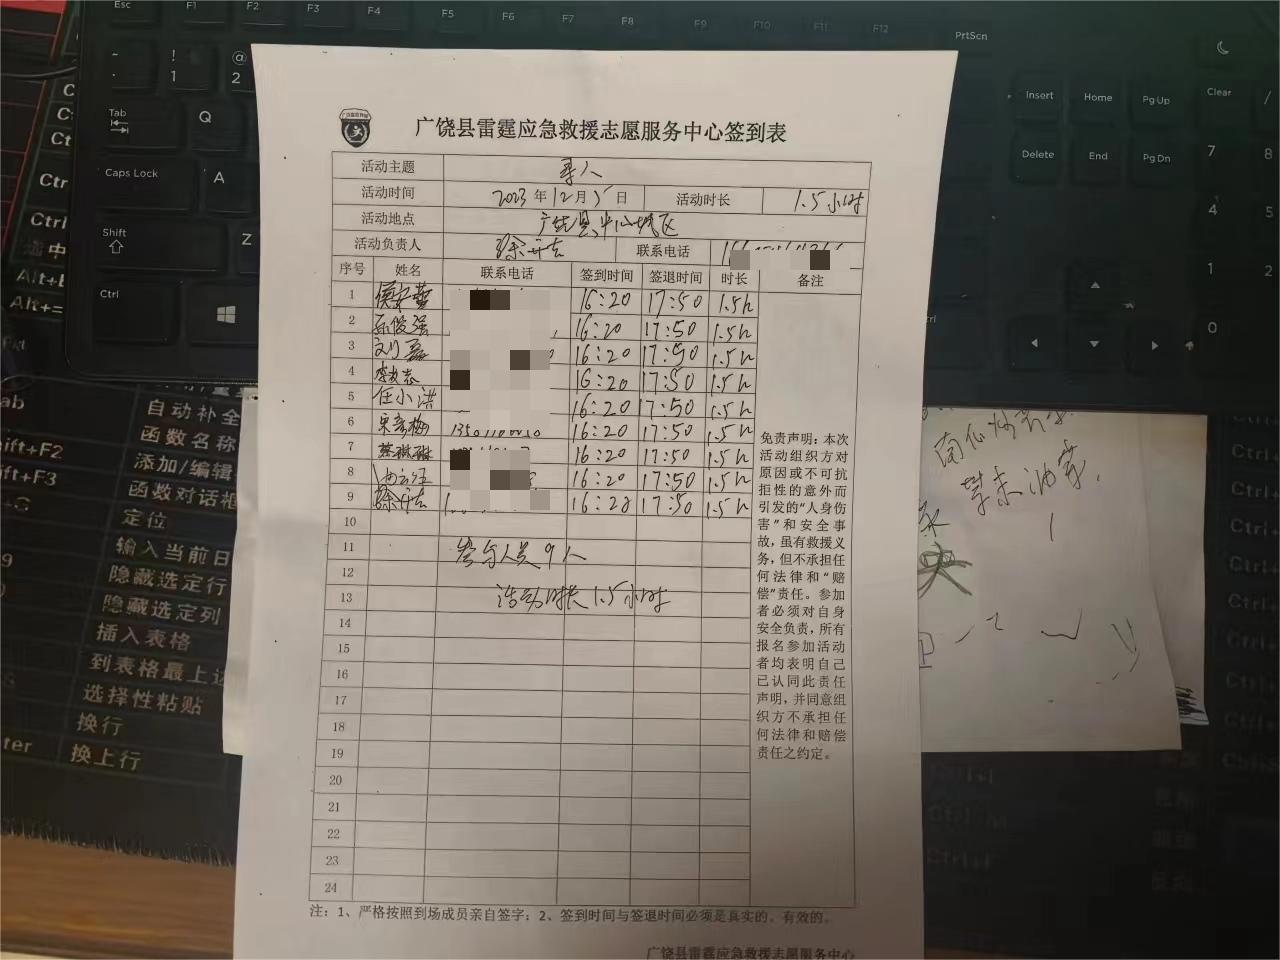 Esc F1 F2 F3 F4 F5 F6 F7 F8 F9 F10 F11 F12 PrtSc
! 1 @ 2
Tab Q
Caps Lock A
Shift Z
Ctrl
Insert Home PgUp Clear /
Delete End PgDn 7 8
4 5
1 2
0
广饶县雷霆应急救援志愿服务中心签到表
活动主题 寻人
活动时间 2023年12月5日 活动时长 1.5小时
活动地点 广饶县中心城区
活动负责人 徐升志 联系电话
序号 姓名 联系电话 签到时间 签退时间 时长 备注
1 16:20 17:50 1.5h
2 孙俊强 16:20 17:50 1.5h
3 刘磊 16:20 17:50 1.5h
4 16:20 17:50 1.5h
5 任小洪 16:20 17:50 1.5h
6 宋彦梅 16:20 17:50 1.5h
7 16:20 17:50 1.5h
8 16:20 17:50 1.5h
9 徐升志 16:20 17:50 1.5h
10
11 参与人员9人
12
13 活动时长1.5小时
14
15
16
17
18
19
20
21
22
23
24
免责声明：本次
活动组织方对
原因或不可抗
拒性的意外而
引发的“人身伤
害”和安全事
故，虽有救援义
务，但不承担任
何法律和“赔
偿”责任。参加
者必须对自身
安全负责，所有
报名参加活动
者均表明自己
已认同此责任
声明，并同意组
织方不承担任
何法律和赔偿
责任之约定。
注：1、严格按照到场成员亲自签字；2、签到时间与签退时间必须是真实的、有效的。
广饶县雷霆应急救援志愿服务中心
自动补全
函数名称
添加/编辑
函数对话框
定位
输入当前日
隐藏选定行
隐藏选定列
插入表格
到表格最上
选择性粘贴
换行
换上行